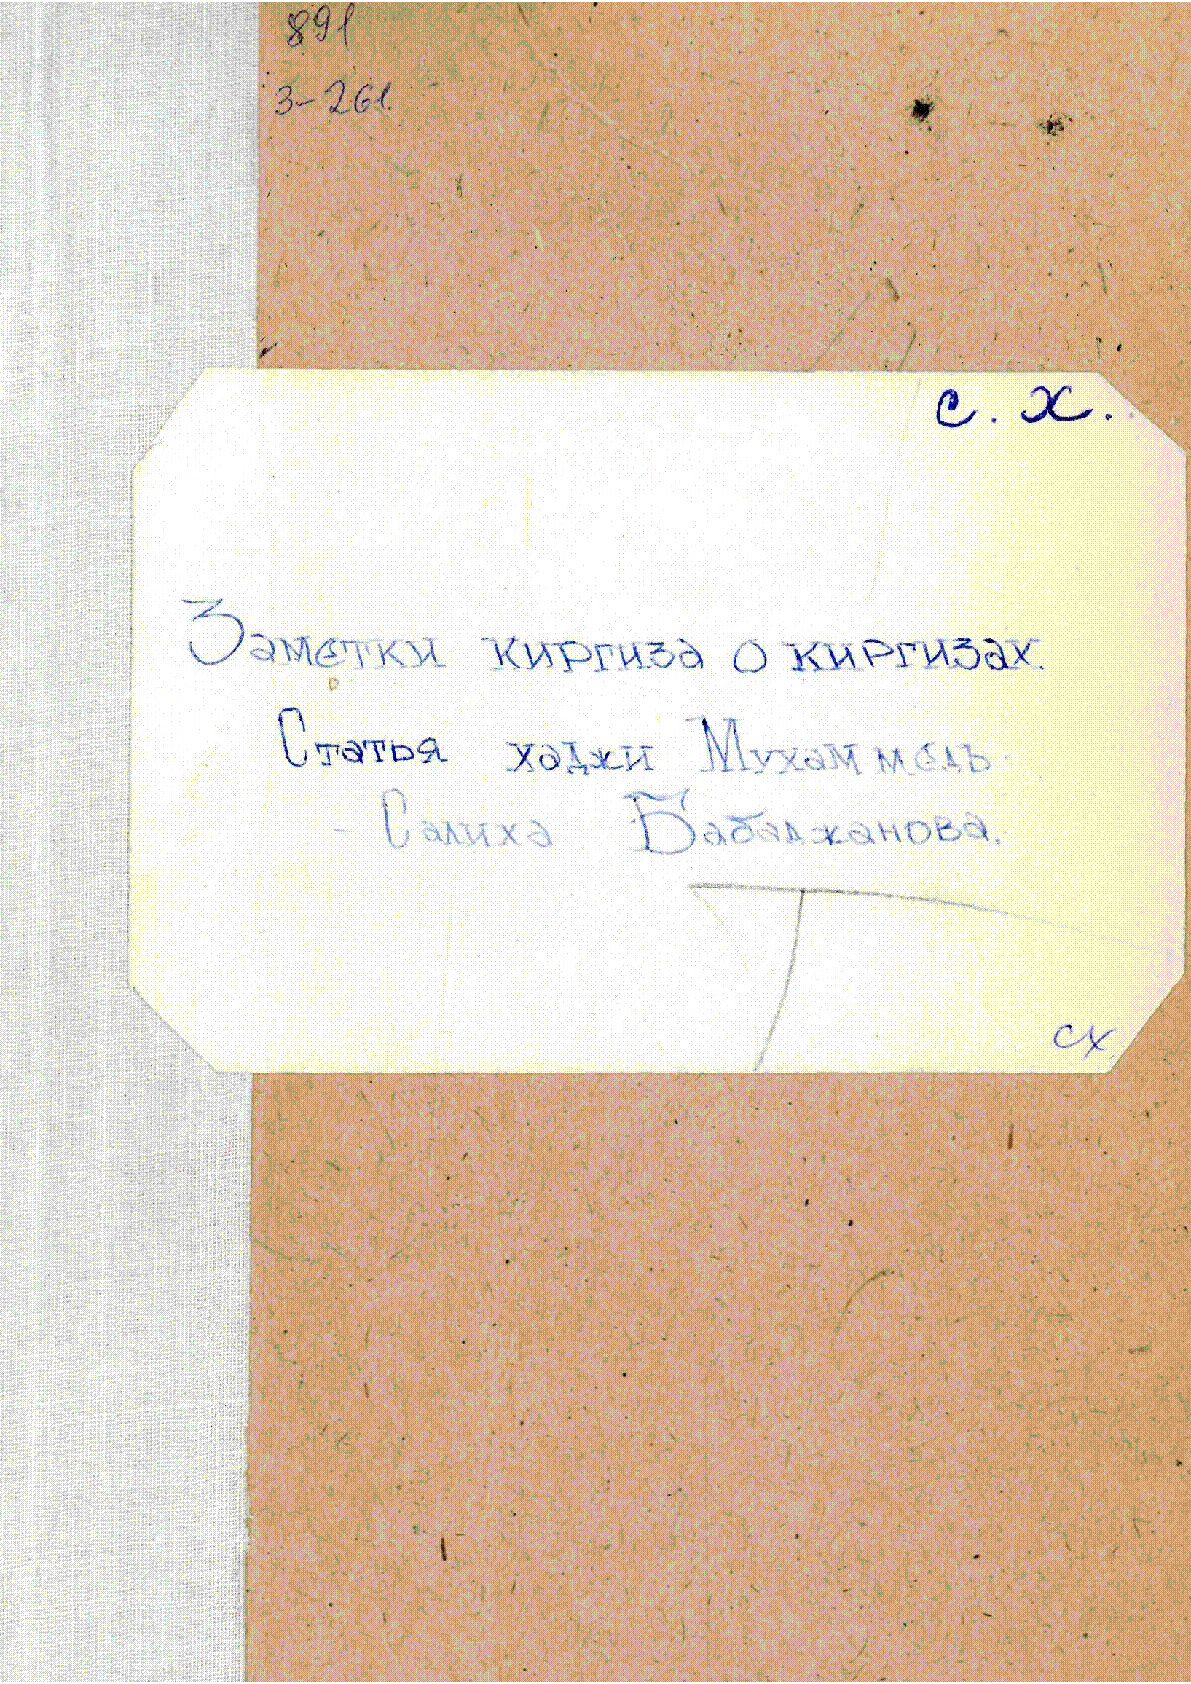 891
З-261.
С. Х.
Заметки киргиза о киргизах.
Статья хаджи Мухаммедъ-
- Салиха Бабаджанова.
СХ